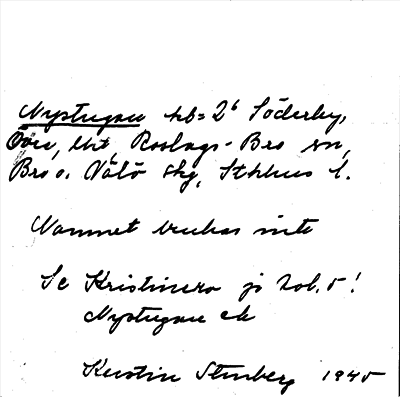 Nystugan hb= 2⁶ Söderby,
Övre, Roslags-Bro sn,
Bro o. Vätö skg, Sthlms l.
Namnet brukas inte
Se Kristinero jr hol. 5!
Nystugan ek
Kerstin Stenberg 1945